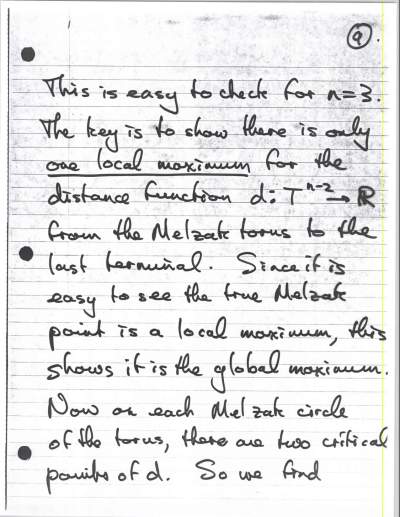 9.
This is easy to check for n=3.
The key is to show there is only
one local maximum for the
distance function d: T^{n-2} → ℝ
from the Melzak torus to the
last terminal. Since it is
easy to see the true Melzak
point is a local maximum, this
shows it is the global maximum.
Now on each Melzak circle
of the torus, there are two critical
points of d. So we find